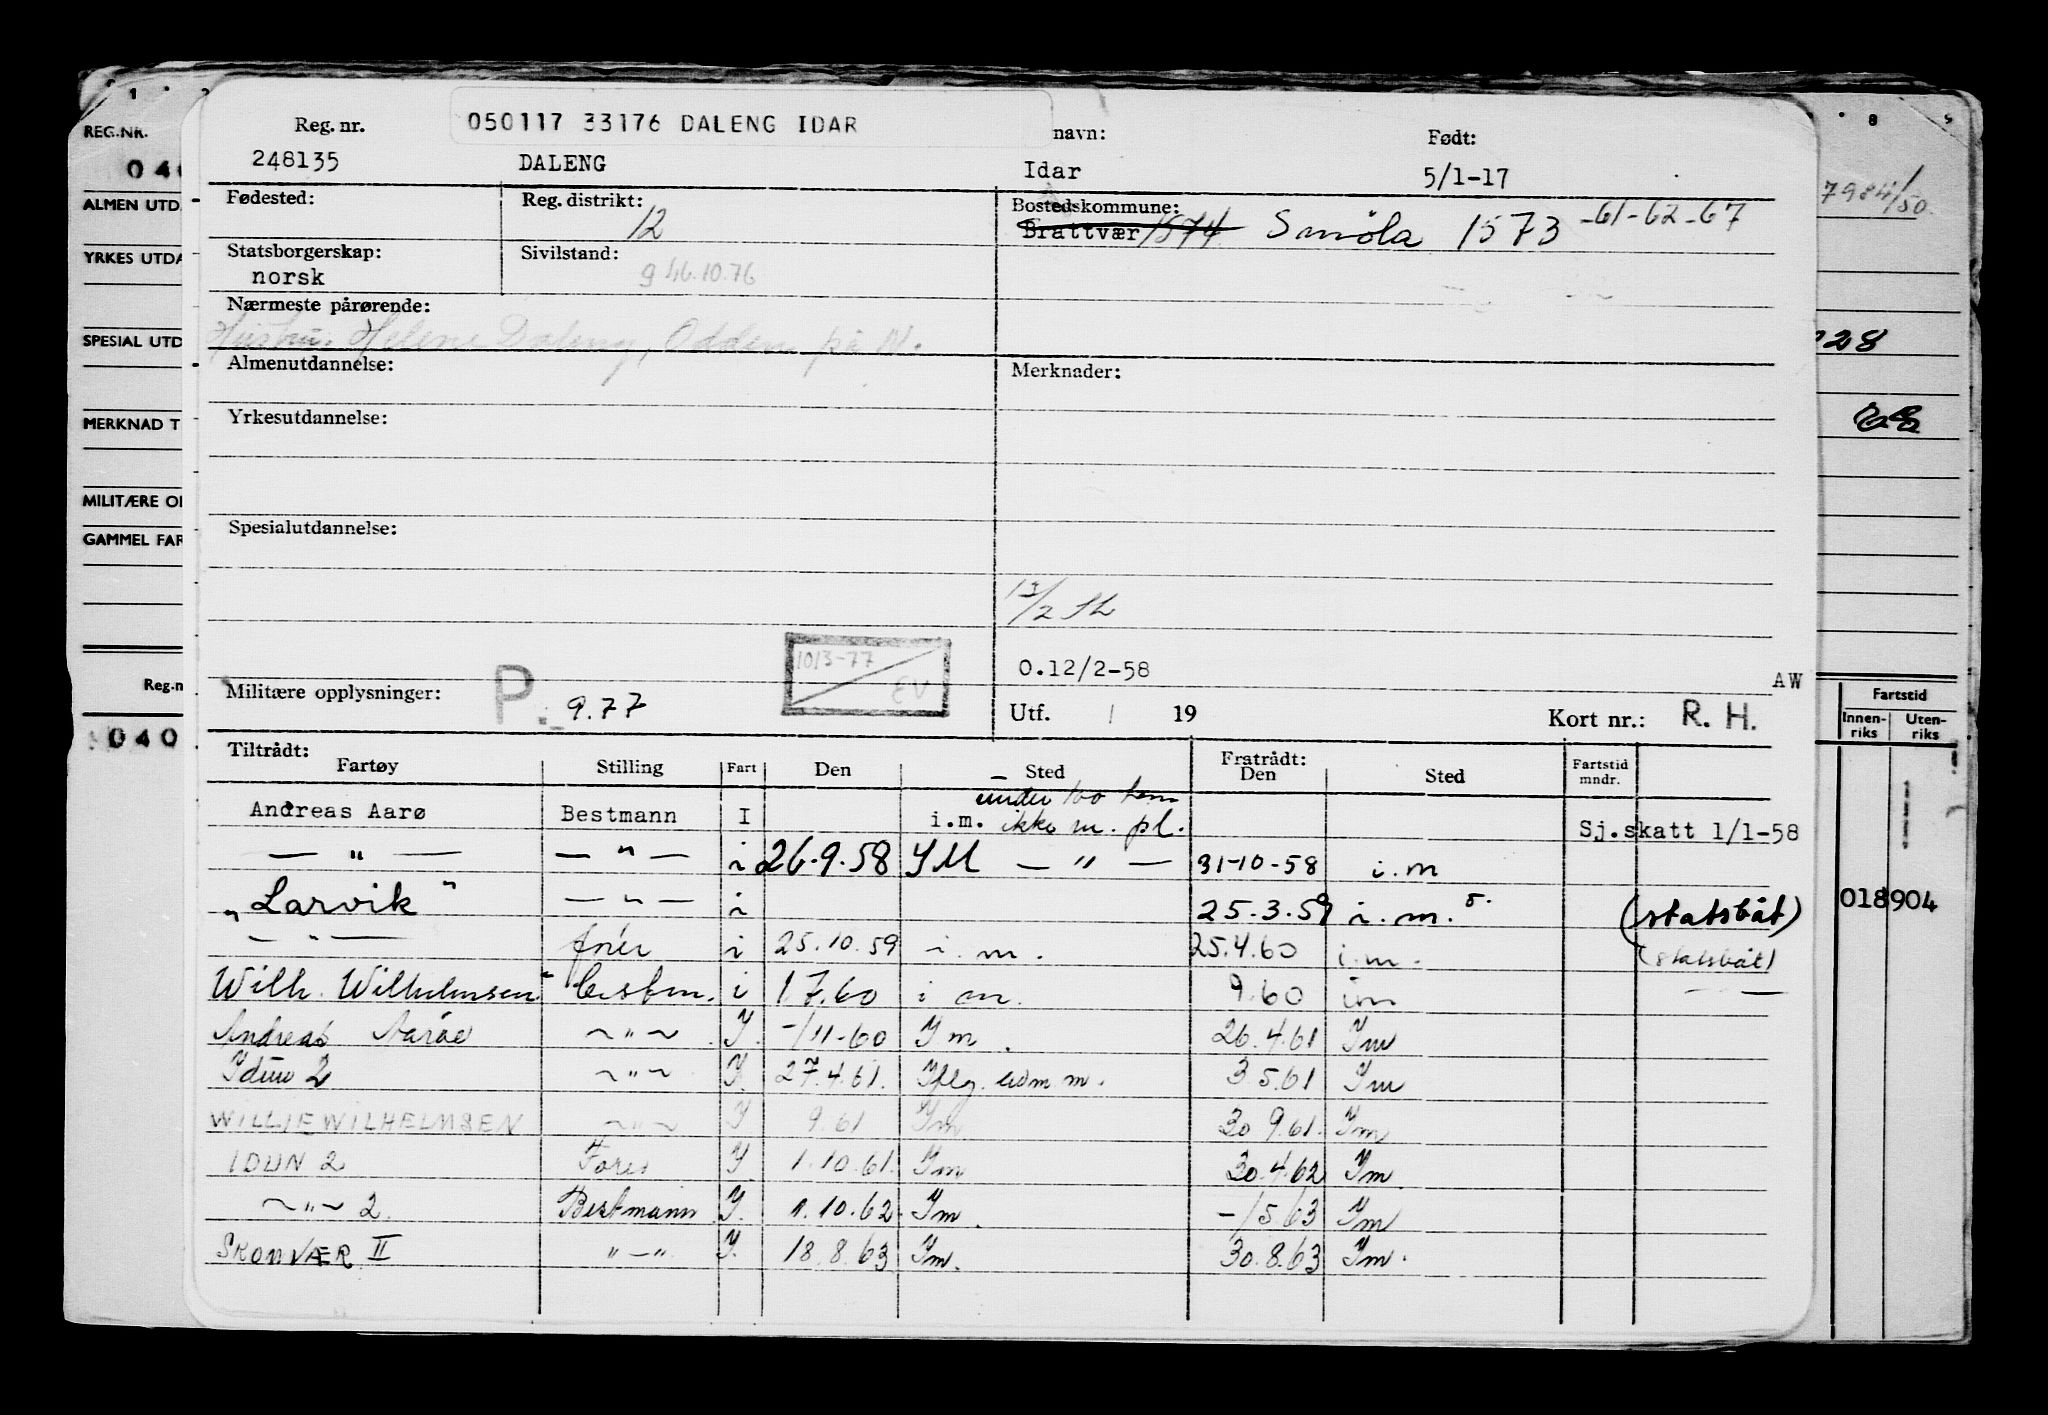 050117 33176 DALENG IDAR
REG.NR. Reg. nr. navn: Født:
040 248135 DALENG Idar 5/1-17
7984/50
ALMEN UTD. Fødested: Reg. distrikt: 12 Bostedskommune: Brattvær 1574 Smöla 1573 -61-62-67
YRKES UTDA Statsborgerskap: norsk Sivilstand: g 46.10.76
Nærmeste pårørende:
Hustru: Helene Daleng, Odden på N.
SPESIAL UTD 28
Almenutdannelse: Merknader:
MERKNAD T Yrkesutdannelse:
MILITÆRE OP
GAMMEL FAR Spesialutdannelse:
1013-77 EV
O.12/2-58 AW
Reg.n Militære opplysninger: P. 9.77 Utf. 19 Kort nr.: R. H.
Fartstid
Innen-riks Uten-riks
040
Tiltrådt: Fratrådt:
Fartøy Stilling Fart Den Sted Den Sted Fartstid mndr.
under 100 tonn
Andreas Aarø Bestmann I i.m. ikke m. pl. Sj.skatt 1/1-58
— " — — " — i 26.9.58 IM — " — 31-10-58 i.m
"Larvik" — " — i 25.3.59 i.m. (statsbåt) 018904
— " — i 25.10.59 i.m. 25.4.60 i.m. (statsbåt)
Wilh. Wilhelmsen bestm. i 1.7.60 i m. 9.60 im — —
Andreas Aarøe ~"~ I. -/11-60 Im. 26.4.61 Im
Idun 2 ~"~ I. 27.4.61. 3.5.61 Im
WILLIEWILHELMSEN ~"~ I 9.61 Im 30 9.61. Im
IDUN 2 I 1.10.61. Im 30.4.62 Im.
~"~ 2. Bestmann I. 1.10.62. Im. -/5.63 Im
SKOMVÆR II "-" I. 18.8.63 Im. 30.8.63 Im.